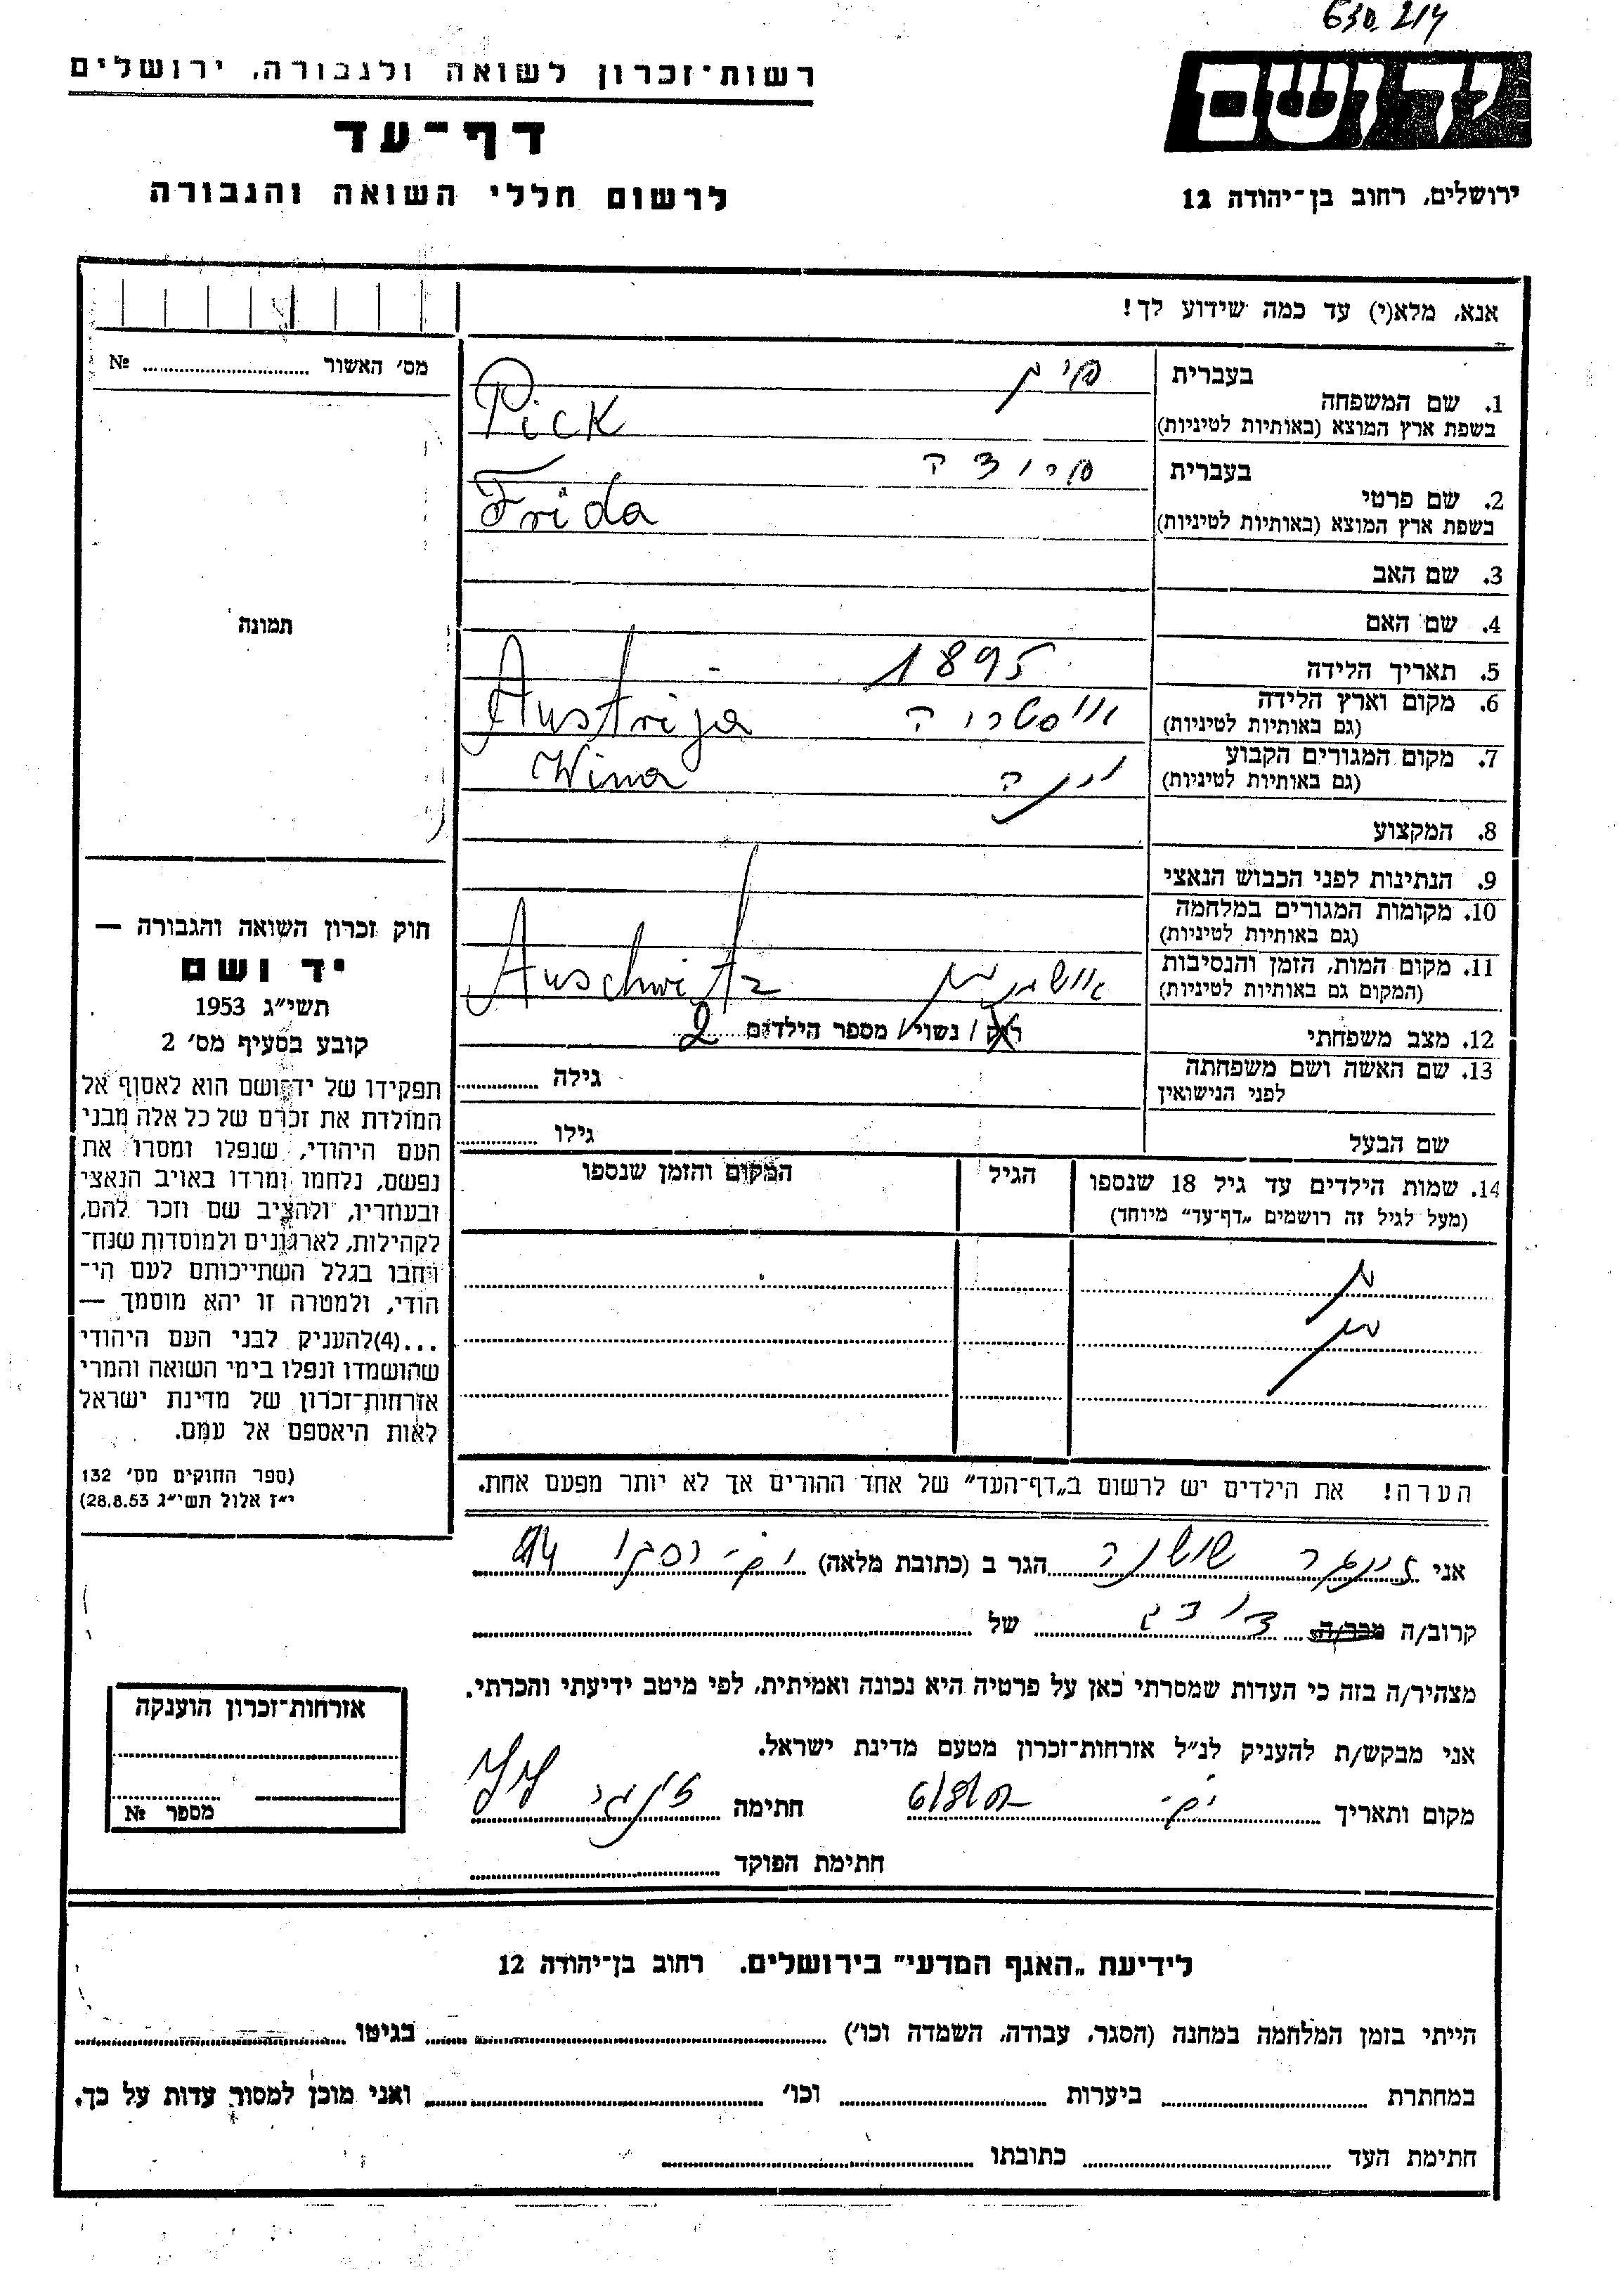 630.214
יד ושם
ירושלים, רחוב בן־יהודה 12
רשות־זכרון לשואה ולגבורה, ירושלים
דף־עד
לרשום חללי השואה והגבורה
אנא, מלא(י) עד כמה שידוע לך!
מס׳ האשור № ........
תמונה
בעברית פיק
1. שם המשפחה
בשפת ארץ המוצא (באותיות לטיניות) Pick
בעברית פרידה
2. שם פרטי
בשפת ארץ המוצא (באותיות לטיניות) Frida
3. שם האב
4. שם האם
5. תאריך הלידה 1895
6. מקום וארץ הלידה
(גם באותיות לטיניות) אוסטריה Austrija
7. מקום המגורים הקבוע
(גם באותיות לטיניות) וינה Wina
8. המקצוע
9. הנתינות לפני הכבוש הנאצי
10. מקומות המגורים במלחמה
(גם באותיות לטיניות)
11. מקום המות, הזמן והנסיבות
(המקום גם באותיות לטיניות) Auschwitz
12. מצב משפחתי רוק / נשוי / מספר הילדים 2
13. שם האשה ושם משפחתה
לפני הנישואין
גילה ........
שם הבעל גילו ........
14. שמות הילדים עד גיל 18 שנספו
(מעל לגיל זה רושמים „דף־עד” מיוחד)
הגיל
המקום והזמן שנספו
הערה! את הילדים יש לרשום ב„דף־העד” של אחד ההורים אך לא יותר מפעם אחת.
חוק זכרון השואה והגבורה —
יד ושם
תשי״ג 1953
קובע בסעיף מס׳ 2
תפקידו של יד־ושם הוא לאסוף אל
המולדת את זכרם של כל אלה מבני
העם היהודי, שנפלו ומסרו את
נפשם, נלחמו ומרדו באויב הנאצי
ובעוזריו, ולהציב שם וזכר להם,
לקהילות, לארגונים ולמוסדות שנח־
רבו בגלל השתייכותם לעם הי־
הודי, ולמטרה זו יהא מוסמך —
...(4)להעניק לבני העם היהודי
שהושמדו ונפלו בימי השואה והמרי
אזרחות־זכרון של מדינת ישראל
לאות היאספם אל עמם.
(ספר החוקים מס׳ 132
י״ז אלול תשי״ג 28.8.53)
אני זינגר שושנה הגר ב (כתובת מלאה)
קרוב/ה מכר/ה דודה של ........
מצהיר/ה בזה כי העדות שמסרתי כאן על פרטיה היא נכונה ואמיתית, לפי מיטב ידיעתי והכרתי.
אני מבקש/ת להעניק לנ״ל אזרחות־זכרון מטעם מדינת ישראל.
מקום ותאריך חתימה
חתימת הפוקד ........
אזרחות־זכרון הוענקה
מספר №
לידיעת „האגף המדעי” בירושלים. רחוב בן־יהודה 12
הייתי בזמן המלחמה במחנה (הסגר, עבודה, השמדה וכו׳) ........ בגיטו ........
במחתרת ........ ביערות ........ וכו׳ ........ ואני מוכן למסור עדות על כך.
חתימת העד ........ כתובתו ........